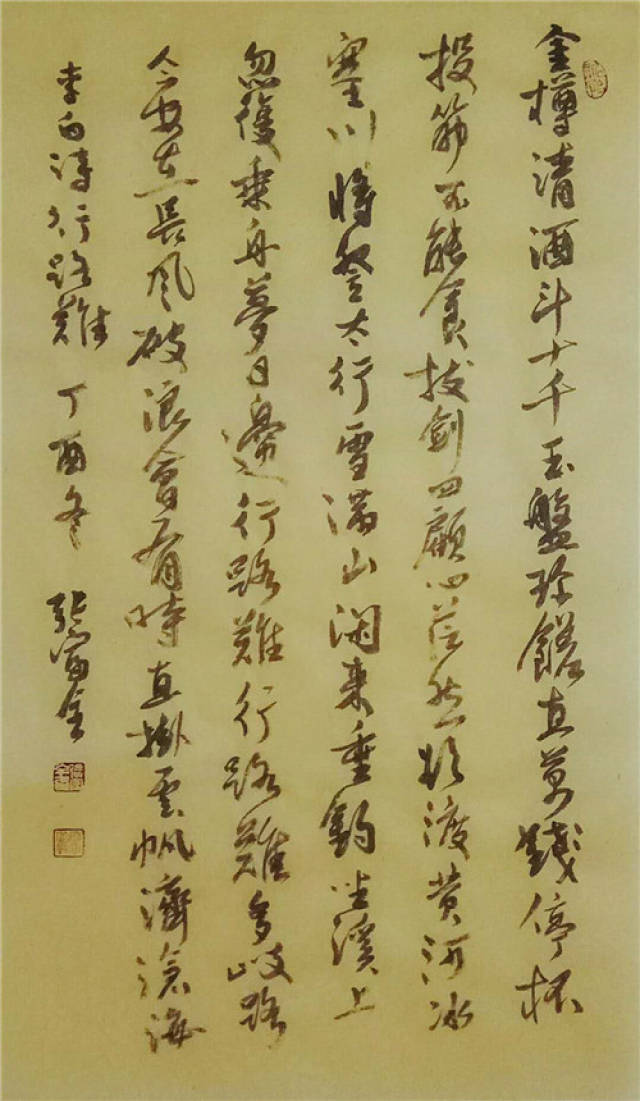 金樽清酒斗十千玉盤珍饈直萬錢停杯
投筯不能食拔劍四顧心茫然欲渡黄河冰
塞川將登太行雪滿山閑來垂釣坐溪上
忽復乘舟夢日邊行路難行路難多岐路
今安在長風破浪會有時直掛雲帆濟滄海
李白詩行路難 丁酉冬 張富金